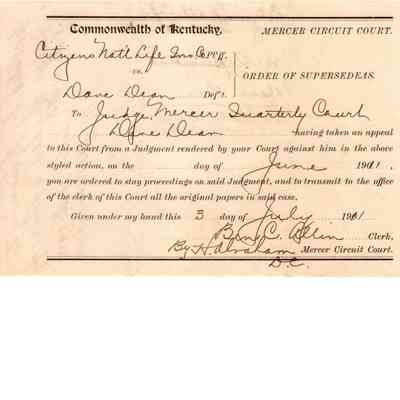 Commonwealth of Kentucky, MERCER CIRCUIT COURT.
Citizens Natl Life Ins Co Pl'ff.
vs. ORDER OF SUPERSEDEAS.
Dave Dean Def't.
To Judge, Mercer Quarterly Court
Dave Dean having taken an appeal
to this Court from a Judgment rendered by your Court against him in the above
styled action, on the day of June 1911,
you are ordered to stay proceedings on said Judgment, and to transmit to the office
of the clerk of this Court all the original papers in said case.
Given under my hand this 3 day of July 1911
Ben C. Allin Clerk,
By H. Abraham Mercer Circuit Court.
D.C.